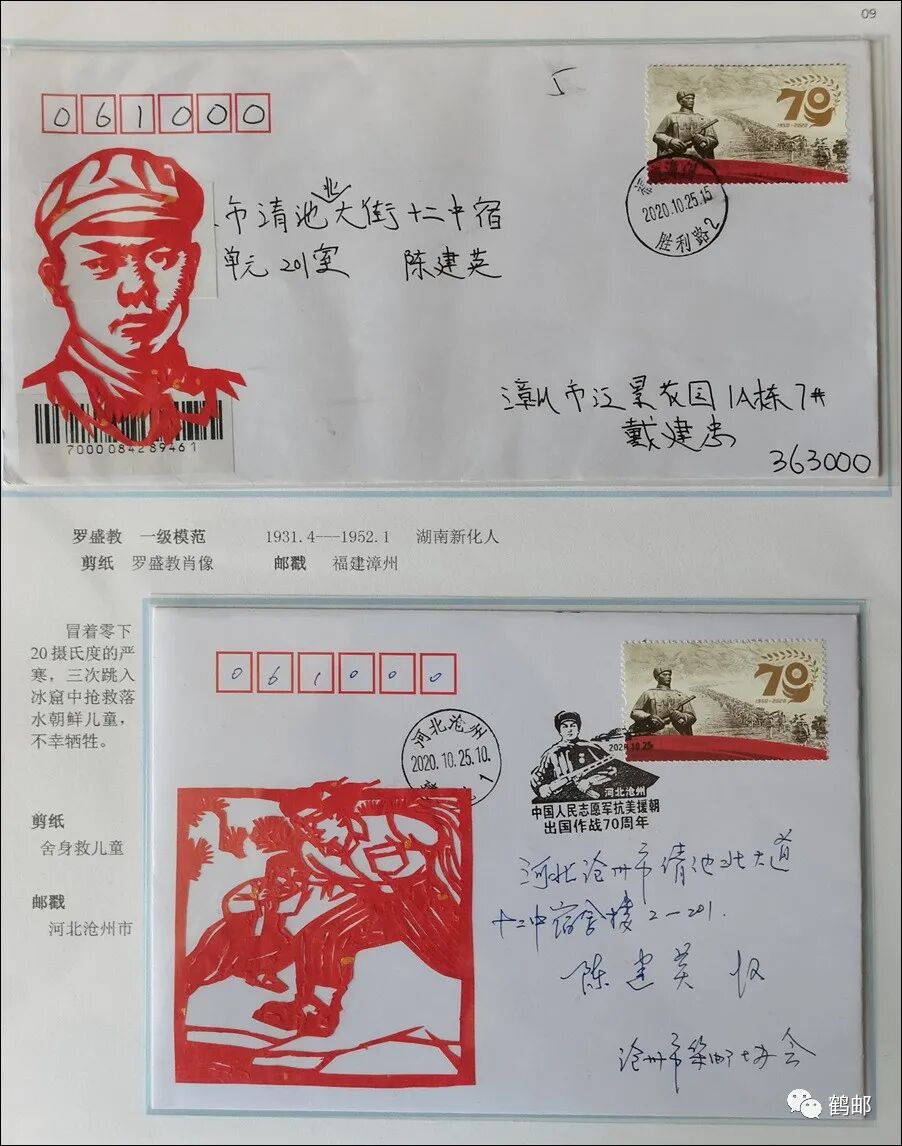 09
061000
5
70
1950-2020
市清池北大街十二中宿
单元201室 陈建英
2020.10.25.15
胜利路2
漳州市江景花园1A栋7#
戴建忠
363000
7000084289461
罗盛教 一级模范 1931.4---1952.1 湖南新化人
剪纸 罗盛教肖像 邮戳 福建漳州
冒着零下
20摄氏度的严
寒，三次跳入
冰窟中抢救落
水朝鲜儿童，
不幸牺牲。
剪纸
舍身救儿童
邮戳
河北沧州市
061000
70
1950-2020
河北沧州
2020.10.25.10.
1
2020.10.25
河北沧州
中国人民志愿军抗美援朝
出国作战70周年
河北沧州市清池北大道
十二中宿舍楼2-201.
陈建英 收
沧州市集邮协会
鹤邮